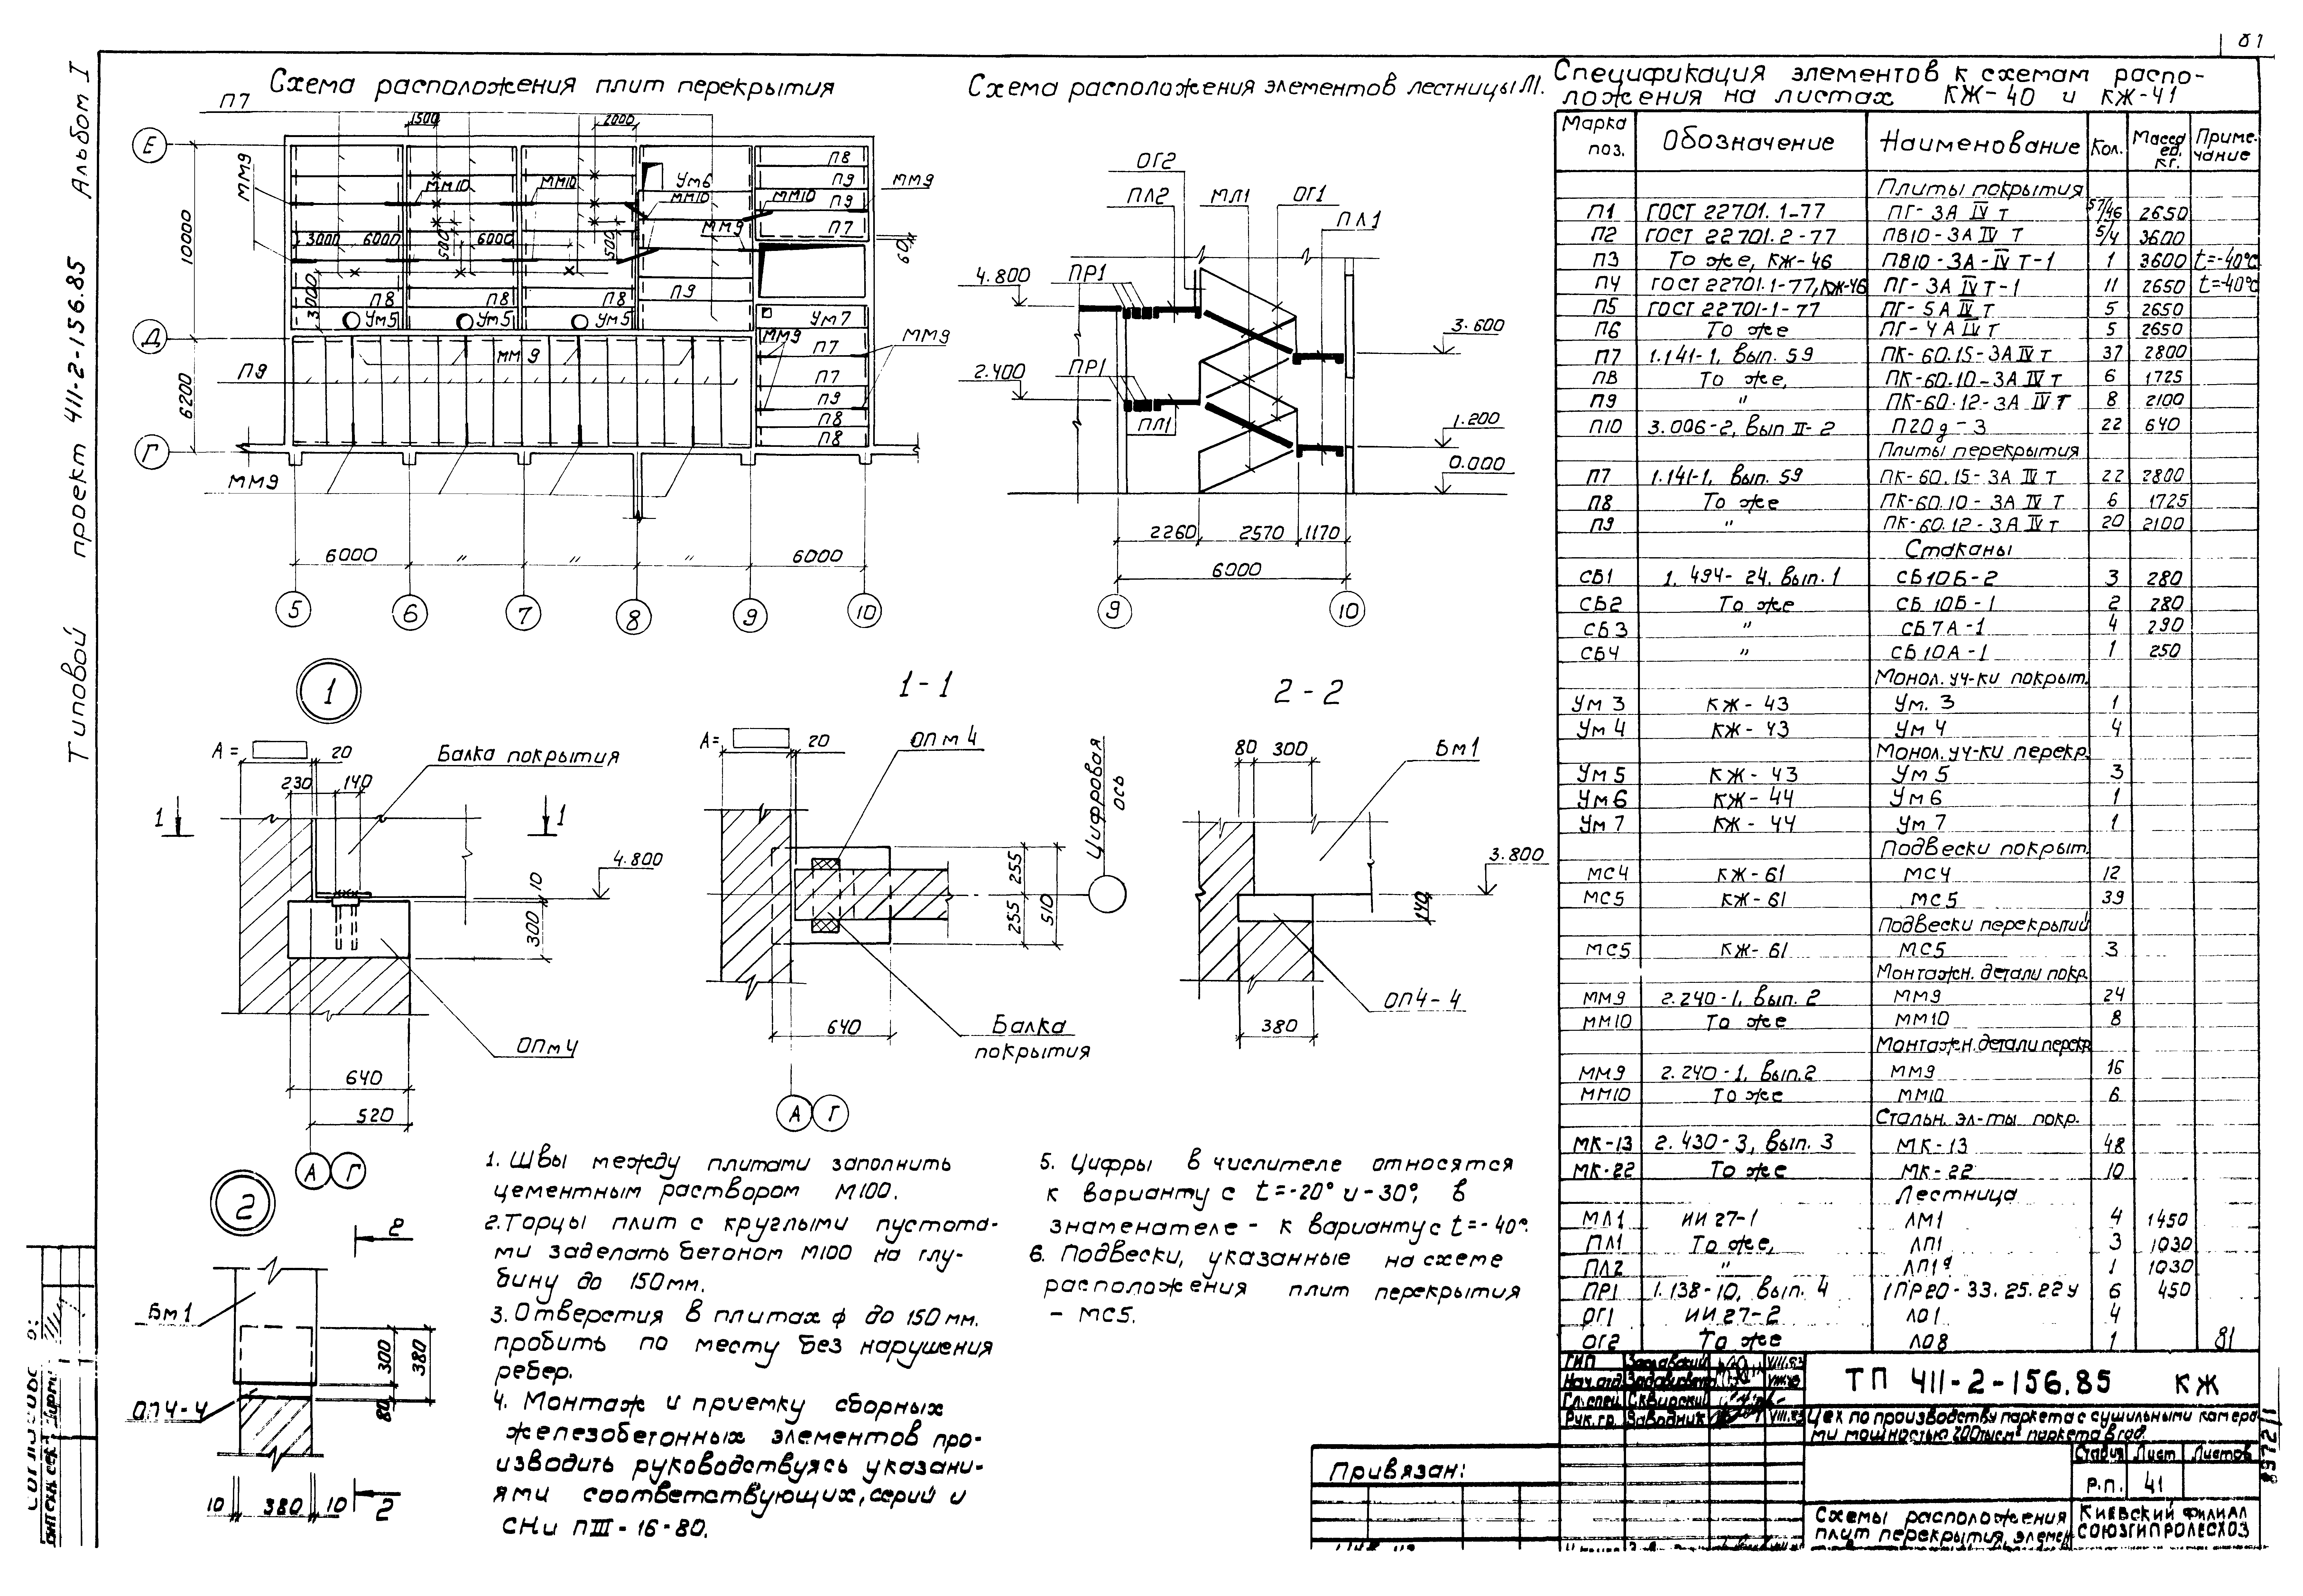 81
Альбом I
Типовой проект 411-2-156.85
Схема расположения плит перекрытия
П7
1500
2000
Е
ММ9
10000
ММ10
ММ10
Ум6
ММ10
ММ10
П8
П9
П9
ММ9
П7
3000
6000
500
6000
500
ММ9
60
3000
П8
П8
П8
П9
Ум5
Ум5
Ум5
Ум7
Д
ММ9
ММ9
ММ9
П7
П9
6200
П7
П9
П8
П8
Г
ММ9
6000
"
"
"
6000
5
6
7
8
9
10
Схема расположения элементов лестницы Л1.
ОГ2
ПЛ2
МЛ1
ОГ1
ПЛ1
4.800
ПР1
3.600
2.400
ПР1
ПЛ1
1.200
0.000
2260
2570
1170
6000
9
10
1
А=
20
Балка покрытия
230
140
1
1
4.800
10
300
ОПм4
640
520
А
Г
1-1
А=
20
ОПм4
Цифровая
ось
255
255
510
640
Балка
покрытия
А
Г
2-2
80
300
Бм1
3.800
140
ОП4-4
380
2
2
Бм1
300
380
ОП4-4
80
10
380
10
2
1. Швы между плитами заполнить
цементным раствором М100.
2. Торцы плит с круглыми пустота-
ми заделать бетоном М100 на глу-
бину до 150мм.
3. Отверстия в плитах ф до 150 мм.
пробить по месту без нарушения
ребер.
4. Монтаж и приемку сборных
железобетонных элементов про-
изводить руководствуясь указани-
ями соответствующих, серий и
СНи ПIII-16-80.
5. Цифры в числителе относятся
к варианту с t=-20° и -30°, в
знаменателе - к варианту с t=-40°.
6. Подвески, указанные на схеме
расположения плит перекрытия
- МС5.
Спецификация элементов к схемам распо-
ложения на листах КЖ-40 и КЖ-41
Марка поз. Обозначение Наименование Кол. Масса ед. кг. Приме-чание
Плиты покрытия
П1 ГОСТ 22701.1-77 ПГ-3А IV т 57/46 2650
П2 ГОСТ 22701.2-77 ПВ10-3А IV Т 5/4 3600
П3 То же, КЖ-46 ПВ10-3А-IV Т-1 1 3600 t=-40°С
П4 ГОСТ 22701.1-77, КЖ-46 ПГ-3А IV Т-1 11 2650 t=-40°С
П5 ГОСТ 22701-1-77 ПГ-5А IV Т 5 2650
П6 То же ПГ-4А IV Т 5 2650
П7 1.141-1, Вып. 59 ПК-60.15-3А IV т 37 2800
П8 То же, ПК-60.10-3А IV т 6 1725
П9 " ПК-60.12-3А IV Т 8 2100
П10 3.006-2, Вып II-2 П20д-3 22 640
Плиты перекрытия
П7 1.141-1, Вып. 59 ПК-60.15-3А IV Т 22 2800
П8 То же ПК-60.10-3А IV Т 6 1725
П9 " ПК-60.12-3А IV т 20 2100
Стаканы
СБ1 1. 494-24. Вып. 1 СБ10Б-2 3 280
СБ2 То же СБ 10Б-1 2 280
СБ3 " СБ7А-1 4 290
СБ4 " СБ10А-1 1 250
Монол. уч-ки покрыт.
Ум 3 КЖ-43 Ум. 3 1
Ум 4 КЖ-43 Ум 4 4
Монол. уч-ки перекр.
Ум 5 КЖ-43 Ум 5 3
Ум6 КЖ-44 Ум6 1
Ум 7 КЖ-44 Ум 7 1
Подвески покрыт.
МС4 КЖ-61 МС4 12
МС5 КЖ-61 МС5 39
Подвески перекрытий
МС5 КЖ-61 МС5 3
Монтажн. детали покр.
ММ9 2.240-1, Вып. 2 ММ9 24
ММ10 То же ММ10 8
Монтажн. детали перекр
ММ9 2.240-1, Вып.2 ММ9 16
ММ10 То же ММ10 6
Стальн. эл-ты покр.
МК-13 2.430-3, Вып. 3 МК-13 48
МК-22 То же МК-22 10
Лестница
МЛ1 ИИ 27-1 ЛМ1 4 1450
ПЛ1 То же, ЛП1 3 1030
ПЛ2 " ЛП1а 1 1030
ПР1 1.138-10, Вып. 4 1ПР20-33.25.22у 6 450
ОГ1 ИИ 27-2 ЛО1 4
ОГ2 То же ЛО8 1
81
ГИП Заславский VIII.83
Нач.отд.
Гл.спец. Сквирский
Рук.гр. Заводник VIII.83
ТП 411-2-156.85 КЖ
Цех по производству паркета с сушильными камера
ми мощностью 200тыс м² паркета в год.
Стадия Лист Листов
Р.П. 41
Схемы расположения
плит перекрытия, элемен
Киевский филиал
СОЮЗГИПРОЛЕСХОЗ
Привязан:
8972/1